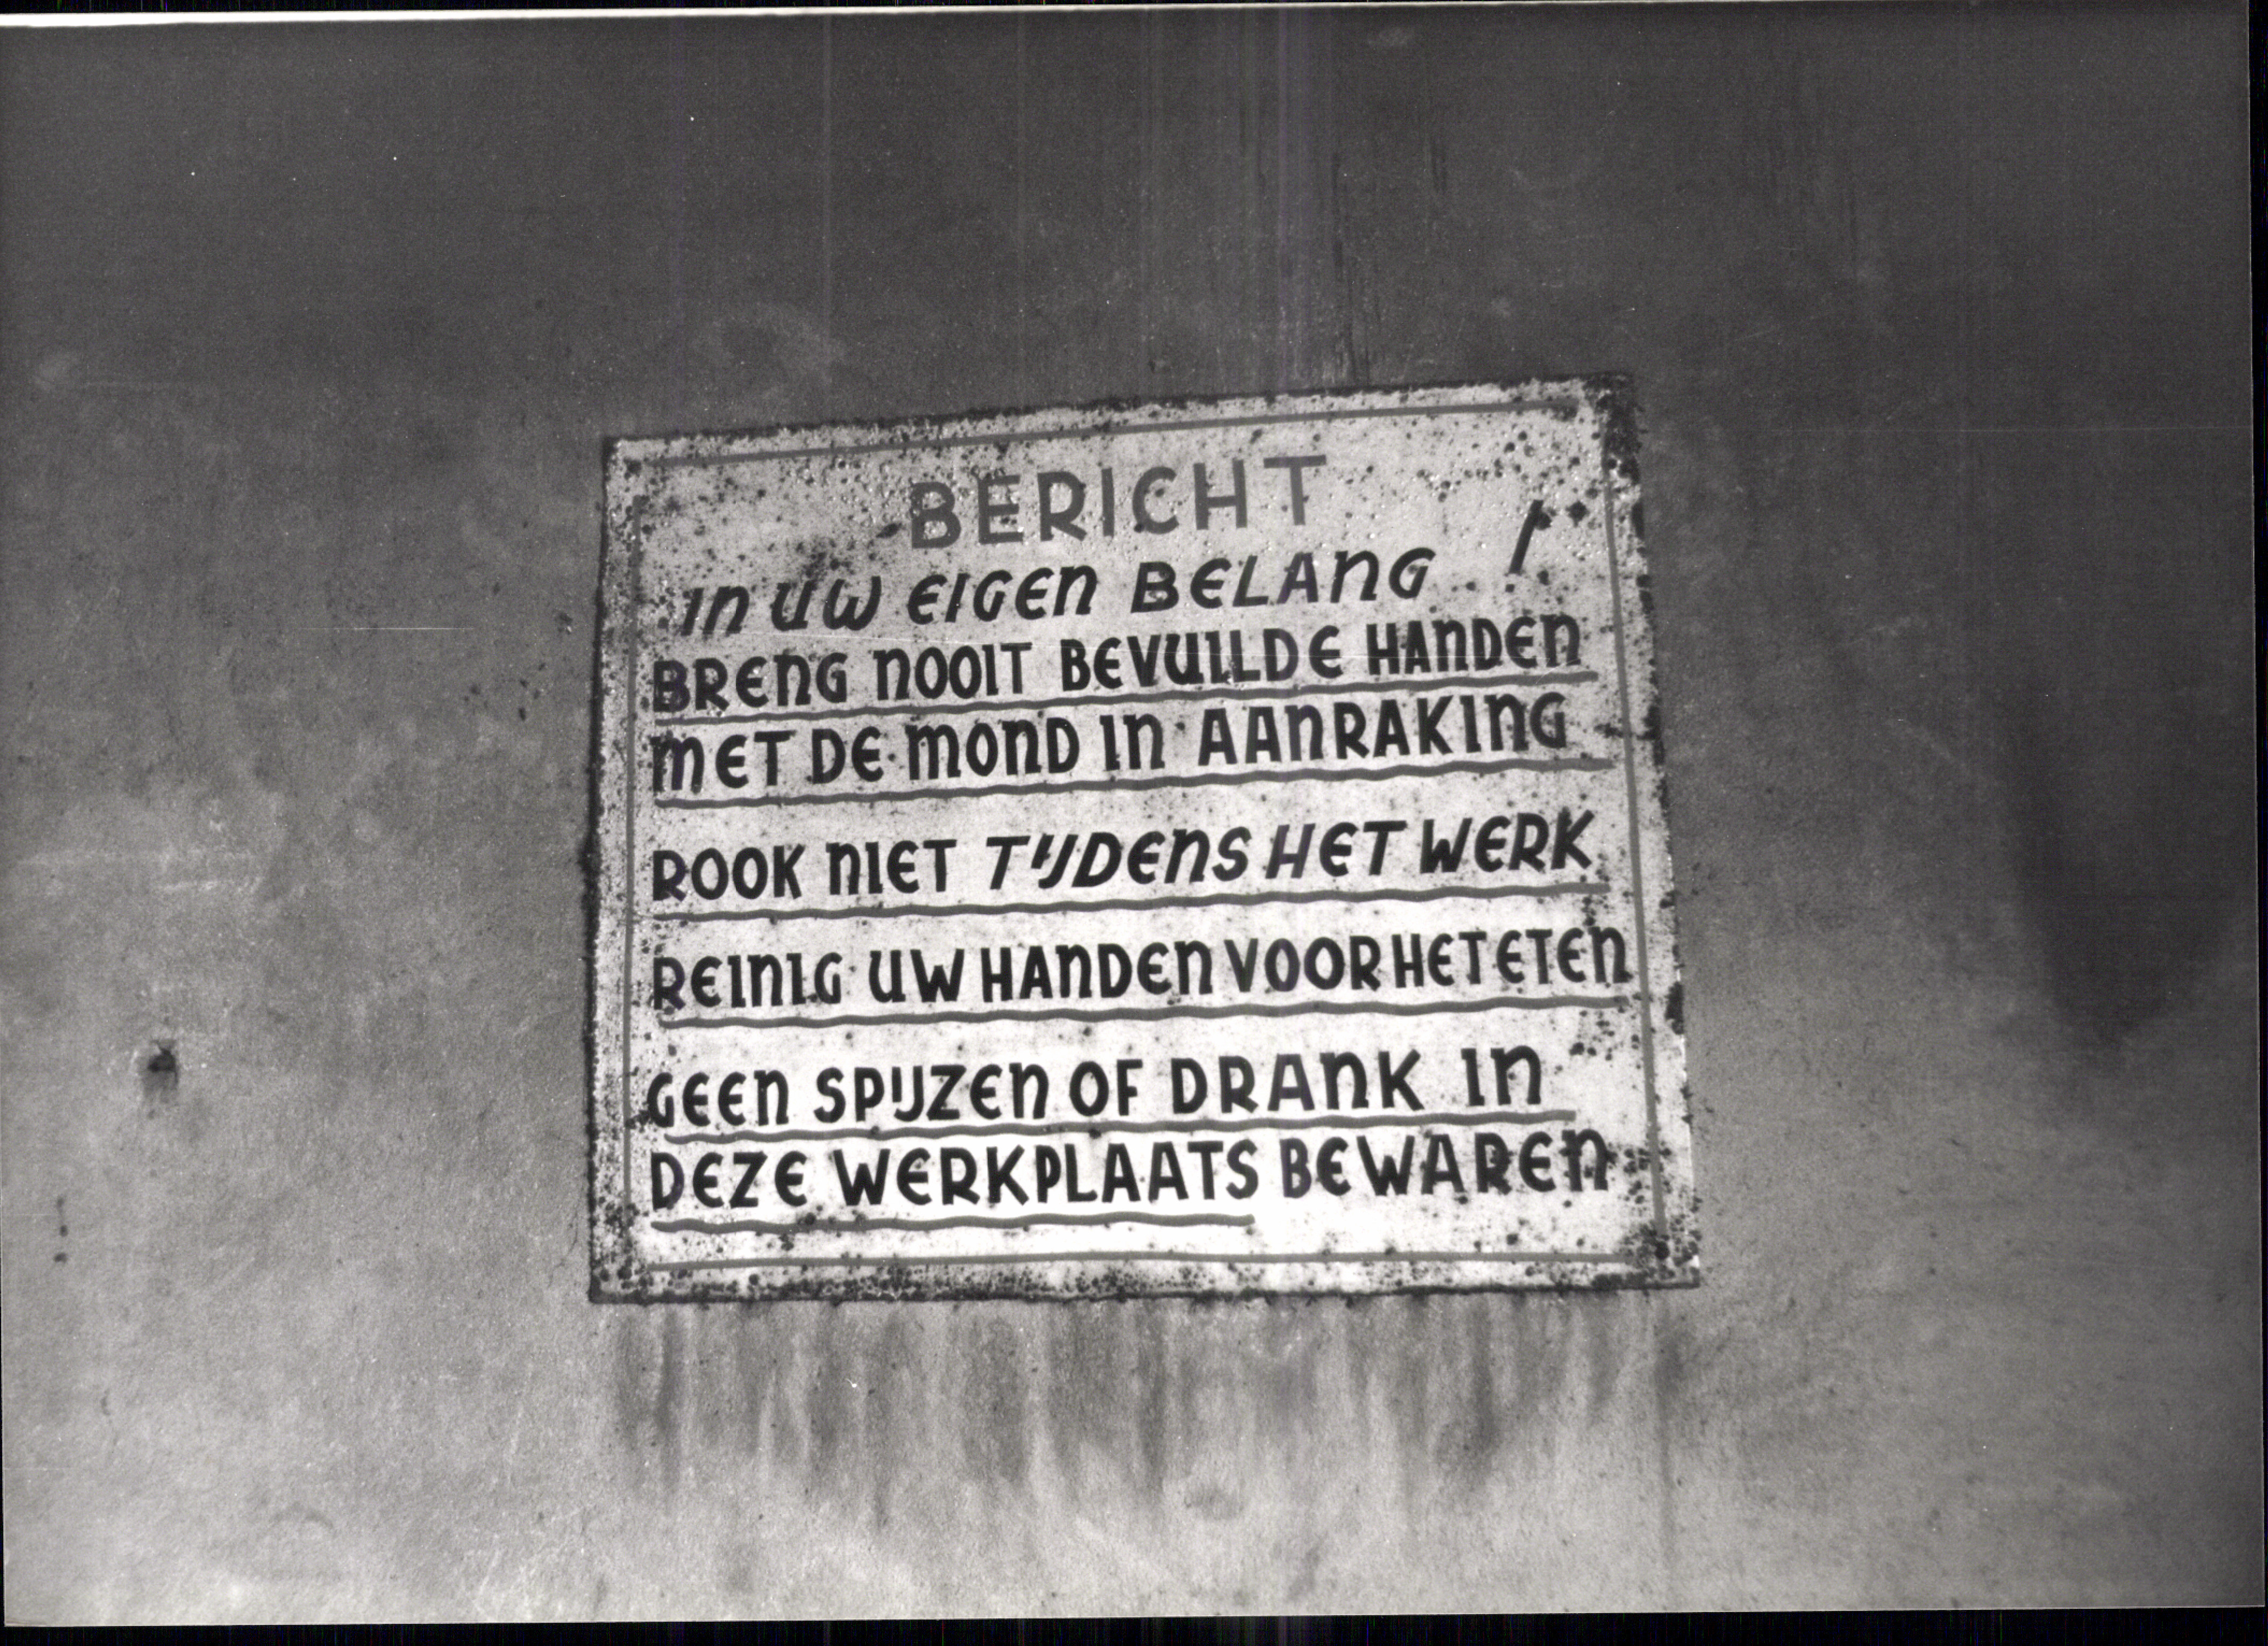 BERICHT
IN UW EIGEN BELANG !
BRENG NOOIT BEVUILDE HANDEN
MET DE MOND IN AANRAKING
ROOK NIET TIJDENS HET WERK
REINIG UW HANDEN VOOR HET ETEN
GEEN SPIJZEN OF DRANK IN
DEZE WERKPLAATS BEWAREN